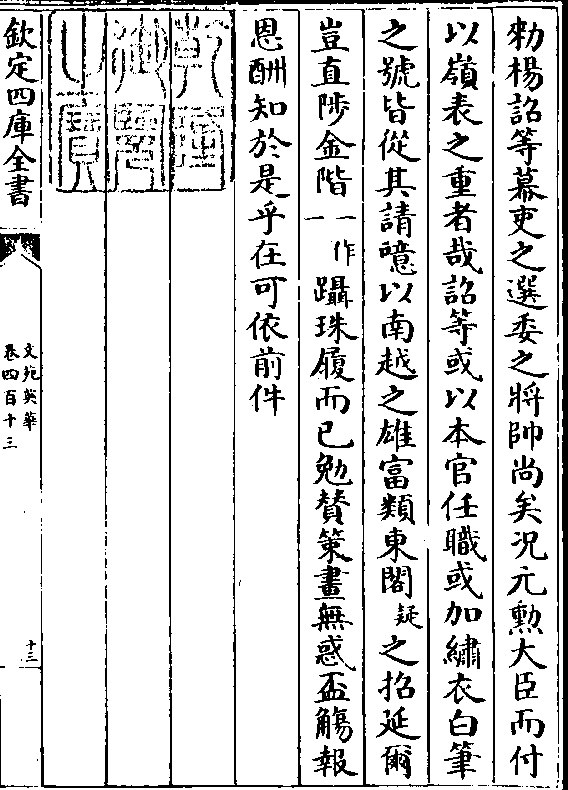 勑楊詔等幕吏之選委之將帥尚矣况元勲大臣而付
以嶺表之重者哉詔等或以本官任職或加繡衣白筆
之號皆從其請噫以南越之雄富類東閣疑之招延爾
豈直陟金階一作躡珠履而已勉賛策畫無惑盃觴報
恩酬知於是乎在可依前件
乾隆御覽之寶
欽定四庫全書
文苑英華
卷四百十三
十三